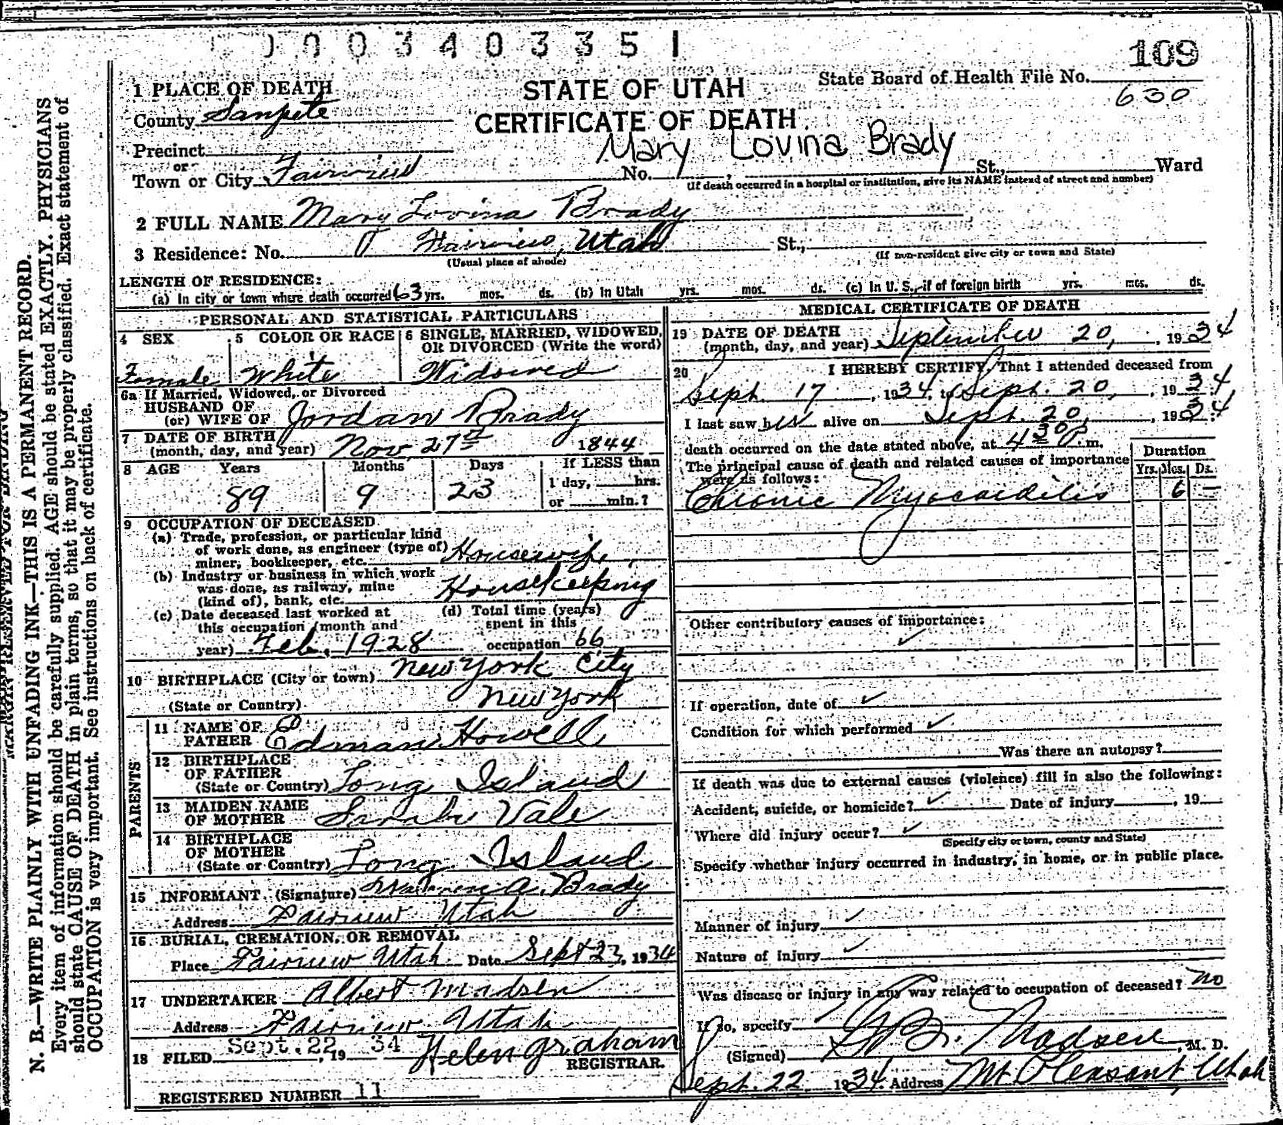 0 0 0 3 4 0 3 3 5 1
109
State Board of Health File No.
630
STATE OF UTAH
CERTIFICATE OF DEATH
1 PLACE OF DEATH
County Sanpete
Precinct
or
Town or City Fairview
Mary Lovina Brady
No. St., Ward
(If death occurred in a hospital or institution, give its NAME instead of street and number)
2 FULL NAME Mary Lovina Brady
3 Residence: No. Fairview, Utah St.,
(Usual place of abode) (If non-resident give city or town and State)
LENGTH OF RESIDENCE:
(a) In city or town where death occurred 63 yrs. mos. ds. (b) In Utah yrs. mos. ds. (c) In U. S., if of foreign birth yrs. mos. ds.
PERSONAL AND STATISTICAL PARTICULARS
4 SEX
Female
5 COLOR OR RACE
White
6 SINGLE, MARRIED, WIDOWED,
OR DIVORCED (Write the word)
Widowed
6a If Married, Widowed, or Divorced
HUSBAND OF
(or) WIFE OF Jordan Brady
7 DATE OF BIRTH
(month, day, and year) Nov. 27th 1844
8 AGE Years Months Days If LESS than
1 day, hrs.
or min.?
89 9 23
9 OCCUPATION OF DECEASED
(a) Trade, profession, or particular kind
of work done, as engineer (type of)
miner, bookkeeper, etc. Housewife
(b) Industry or business in which work
was done, as railway, mine
(kind of), bank, etc. Housekeeping
(c) Date deceased last worked at
this occupation (month and
year) Feb. 1928
(d) Total time (years)
spent in this
occupation 66
10 BIRTHPLACE (City or town) New York City
(State or Country) New York
PARENTS
11 NAME OF
FATHER Howell
12 BIRTHPLACE
OF FATHER
(State or Country) Long Island
13 MAIDEN NAME
OF MOTHER Sarah Vale
14 BIRTHPLACE
OF MOTHER
(State or Country) Long Island
15 INFORMANT (Signature) A. Brady
Address Fairview Utah
16 BURIAL, CREMATION, OR REMOVAL
Place Fairview Utah Date Sept 23, 1934
17 UNDERTAKER Albert Madsen
Address Fairview Utah
18 FILED Sept. 22 19 34 Helen Graham
REGISTRAR.
REGISTERED NUMBER 11
MEDICAL CERTIFICATE OF DEATH
19 DATE OF DEATH
(month, day, and year) September 20, 1934
20 I HEREBY CERTIFY, That I attended deceased from
Sept. 17, 1934, to Sept. 20, 1934,
I last saw her alive on Sept. 20, 1934;
death occurred on the date stated above, at 4 30 P. m.
The principal cause of death and related causes of importance
were as follows:
Duration
Yrs. Mos. Ds.
Chronic Myocarditis 6
Other contributory causes of importance:
If operation, date of
Condition for which performed
Was there an autopsy?
If death was due to external causes (violence) fill in also the following:
Accident, suicide, or homicide? Date of injury , 19
Where did injury occur?
(Specify city or town, county and State)
Specify whether injury occurred in industry, in home, or in public place.
Manner of injury
Nature of injury
Was disease or injury in any way related to occupation of deceased? no
If so, specify
(Signed) Madsen, M. D.
Sept. 22 1934 Address Mt Pleasant, Utah
N. B.—WRITE PLAINLY WITH UNFADING INK—THIS IS A PERMANENT RECORD.
Every item of information should be carefully supplied. AGE should be stated EXACTLY. PHYSICIANS
should state CAUSE OF DEATH in plain terms, so that it may be properly classified. Exact statement of
OCCUPATION is very important. See instructions on back of certificate.
MARGIN RESERVED FOR BINDING